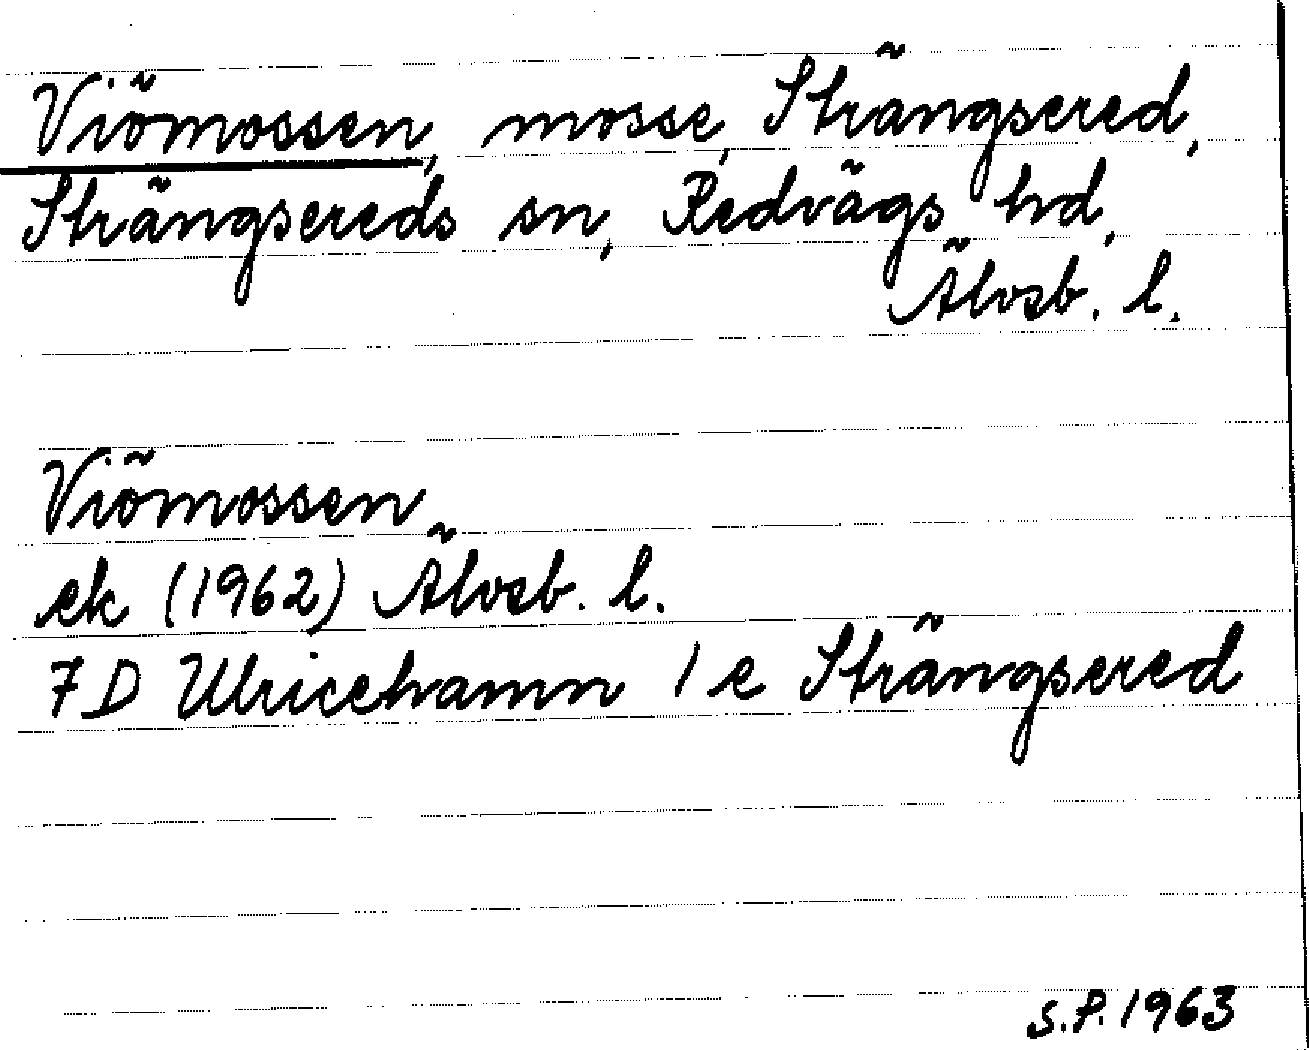 Viömossen, mosse, Strängsered,
Strängsereds sn, Redvägs hd,
Älvsb. l.
Viömossen
ek (1962) Älvsb. l.
7 D Ulricehamn 1 e Strängsered
S.P. 1963